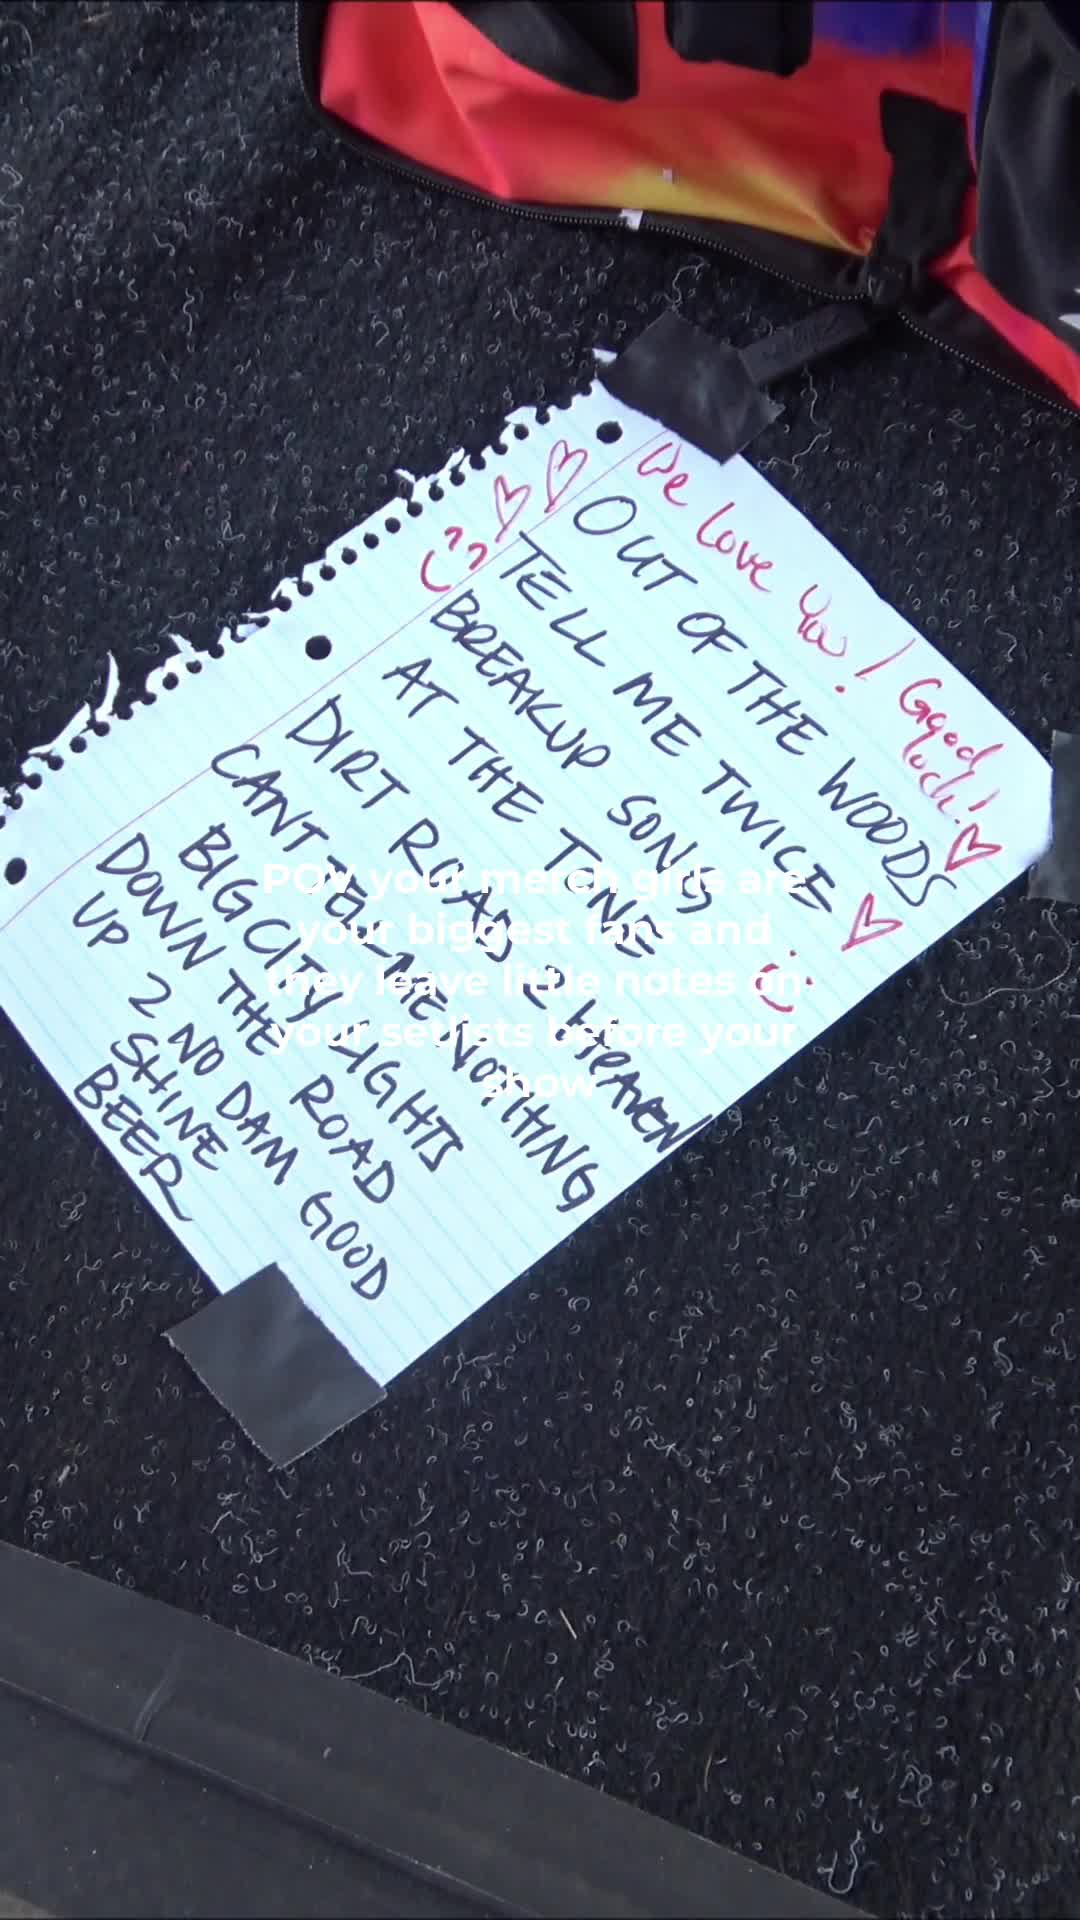 We Love You! Good
luck!
OUT OF THE WOODS
TELL ME TWICE
BREAKUP SONGS
AT THE TONE
DIRT ROAD 2 HEAVEN
CANT TEL ME NOTHING
BIG CITY LIGHTS
DOWN THE ROAD
UP 2 NO DAM GOOD
SHINE
BEER
POV your merch girls are
your biggest fans and
they leave little notes on
your setlists before your
show